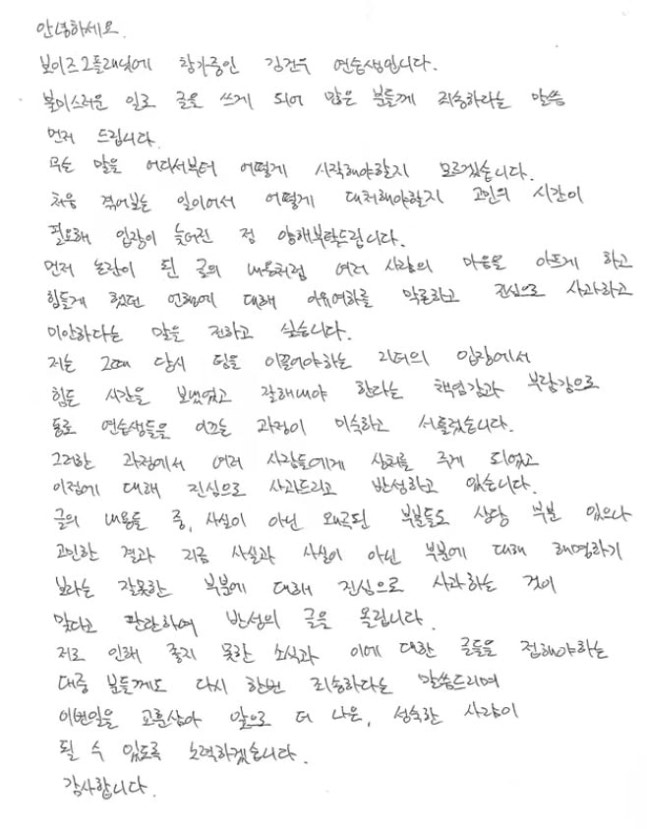 안녕하세요.
보이즈2플래닛에 참가중인 김건우 연습생입니다.
불미스러운 일로 글을 쓰게 되어 많은 분들께 죄송하라는 말씀
먼저 드립니다.
무슨 말을 어디서부터 어떻게 시작해야할지 모르겠습니다.
처음 겪어보는 일이어서 어떻게 대처해야할지 고민의 시간이
필요해 입장이 늦어진 점 양해부탁드립니다.
먼저 논란이 된 글의 내용처럼 여러 사람의 마음을 아프게 하고
힘들게 했던 언행에 대해 이유여하를 막론하고 진심으로 사과하고
미안하다는 말을 전하고 싶습니다.
저는 그때 당시 팀을 이끌어야하는 리더의 입장에서
힘든 시간을 보냈었고 잘해내야 한다는 책임감과 부담감으로
동료 연습생들을 이끄는 과정이 미숙하고 서툴렀습니다.
그러한 과정에서 여러 사람들에게 상처를 주게 되었고
이점에 대해 진심으로 사과드리고 반성하고 있습니다.
글의 내용들 중, 사실이 아닌 왜곡된 부분들도 상당 부분 있으나
고민한 결과 지금 사실과 사실이 아닌 부분에 대해 해명하기
보다는 잘못한 부분에 대해 진심으로 사과하는 것이
맞다고 판단하여 반성의 글을 올립니다.
저로 인해 좋지 못한 소식과 이에 대한 글들을 접해야하는
대중 분들께도 다시 한번 죄송하라는 말씀드리며
이번일을 교훈삼아 앞으로 더 나은, 성숙한 사람이
될 수 있도록 노력하겠습니다.
감사합니다.